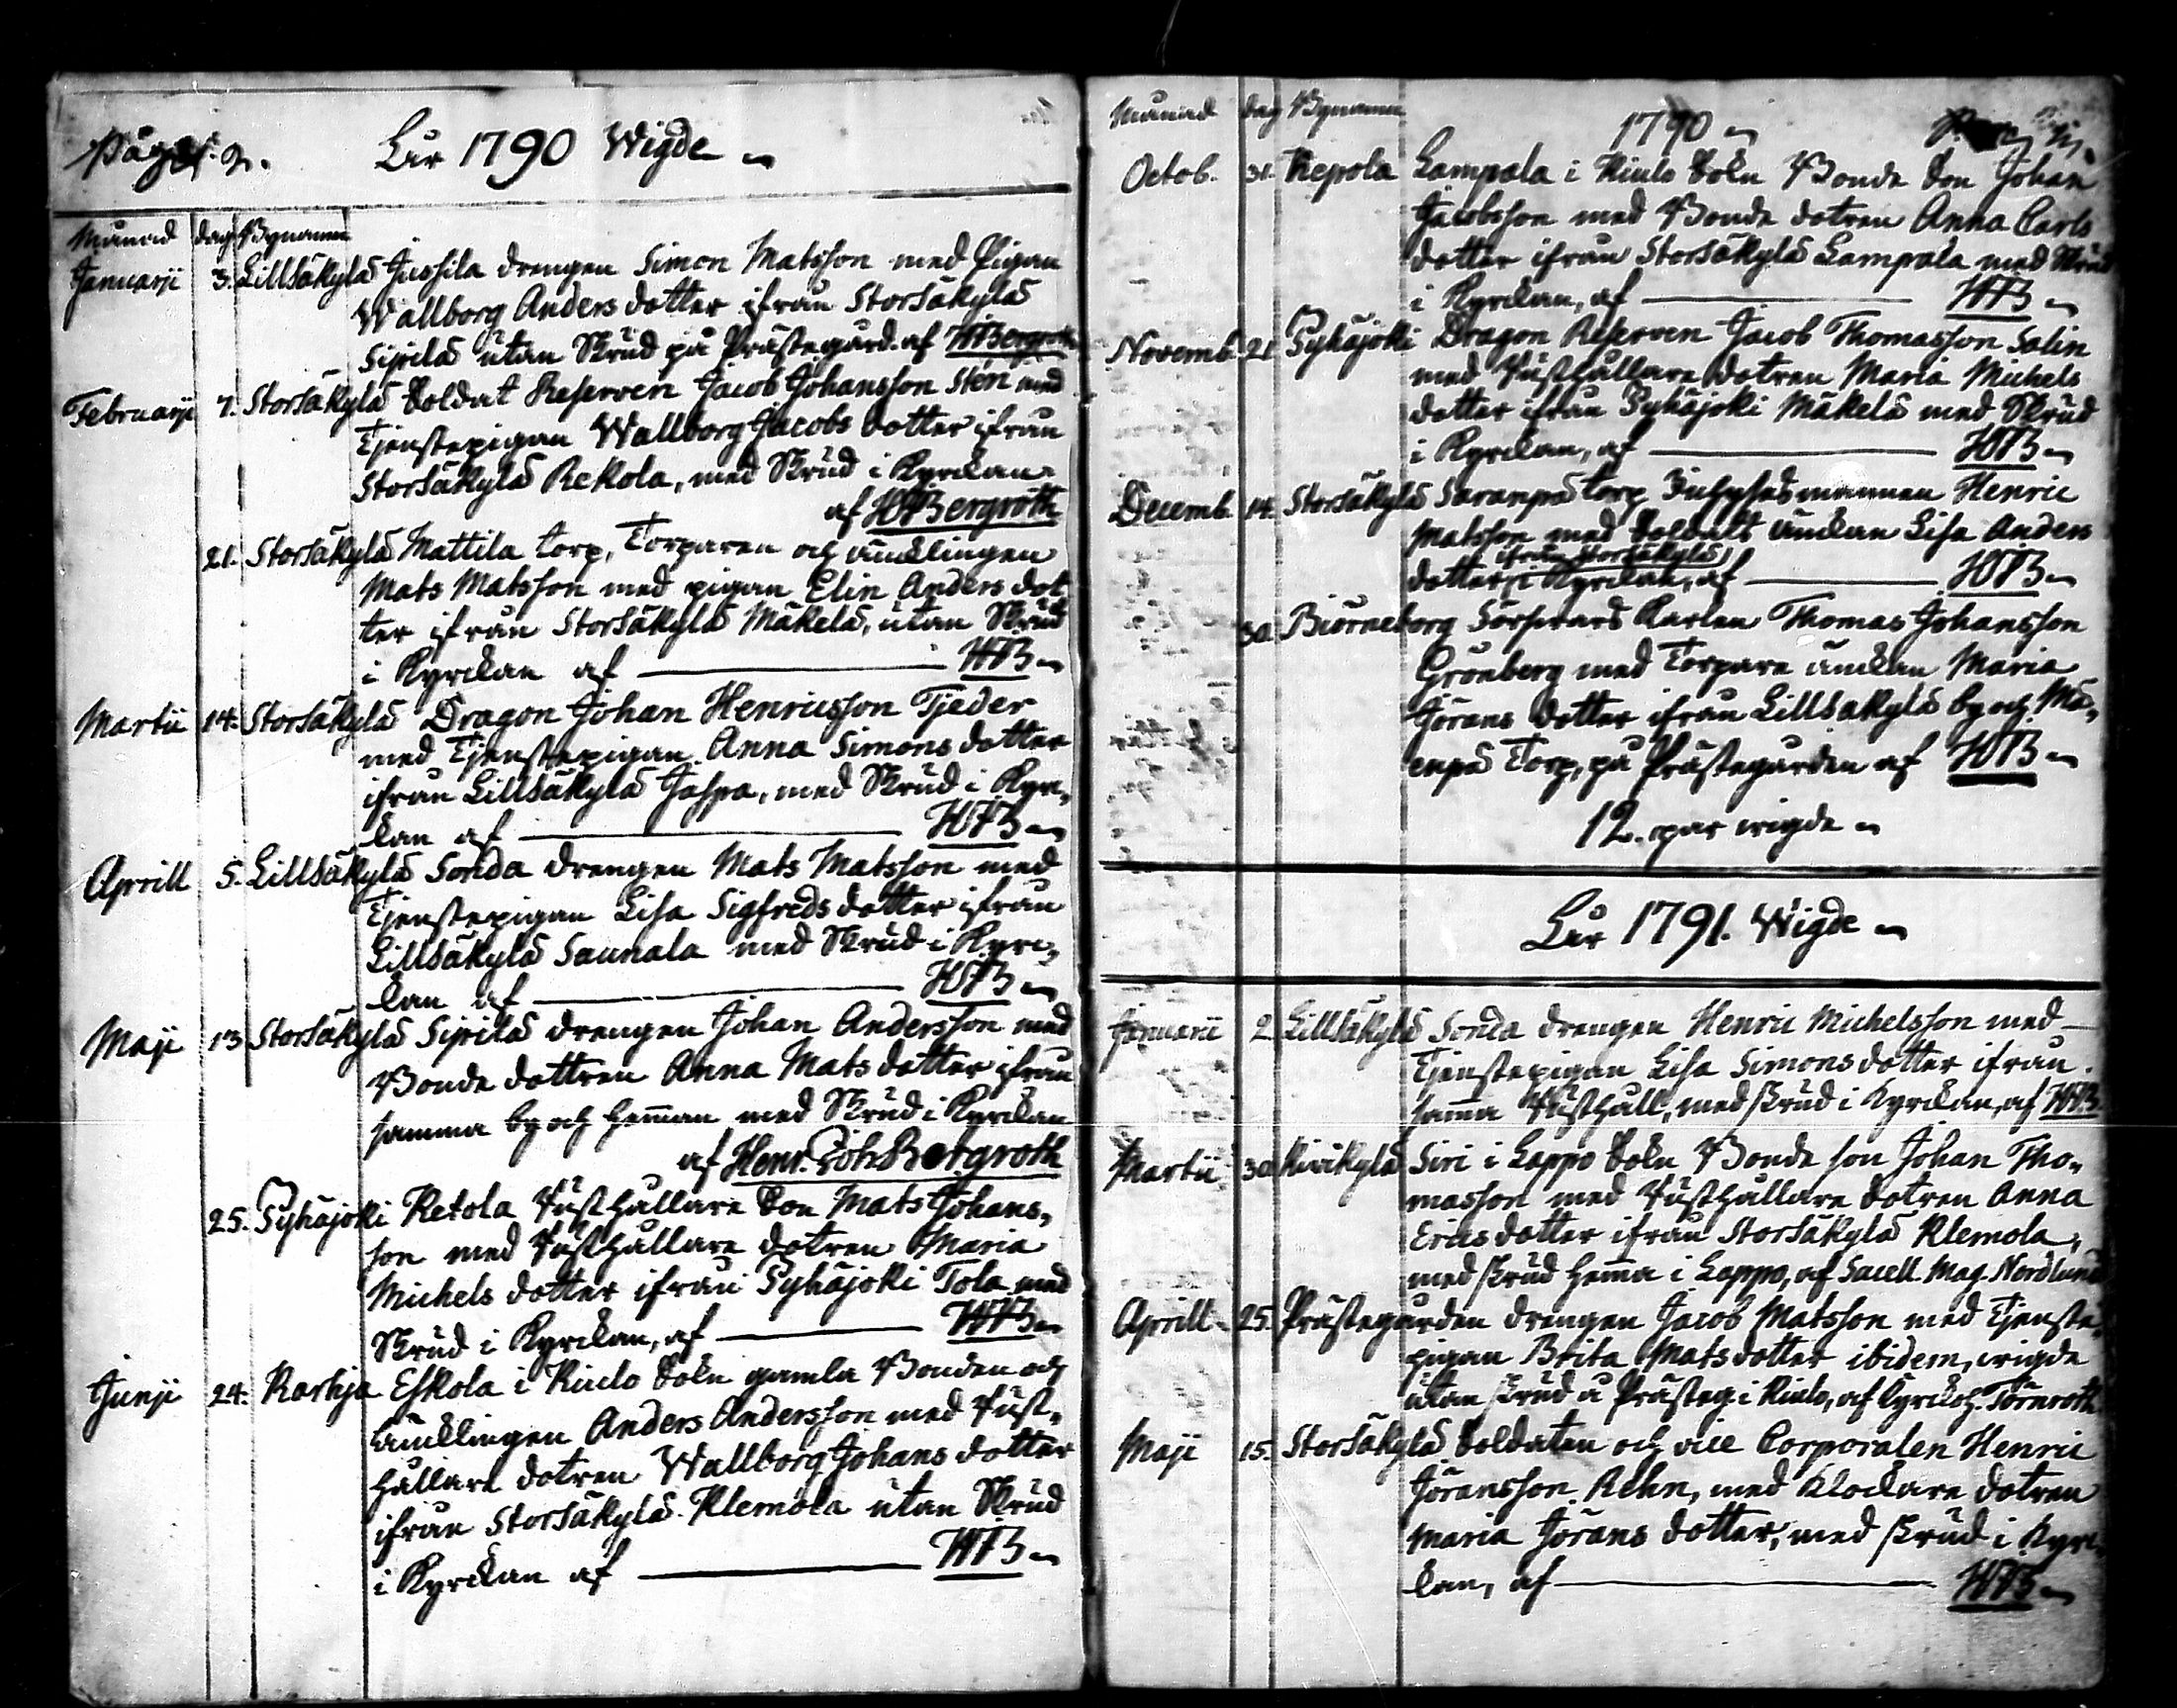 Pag. 2.
År 1790 Wigde
Månad dag Bynamn
Januarii 3. Lillsäkylä Jussila drengen Simon Matsson med Pigan
Wallborg Anders dotter ifrån Storsäkylä
Sipilä utan Skrud på Prästegård. af HJBergroth
Februarii 7. Storsäkylä Soldat Reserven Jacob Johansson Sten med
Tjenstepigan Wallborg Jacobs dotter ifrån
Storsäkylä Rekola, med Skrud i Kyrckan
af HJBergroth
21. Storsäkylä Mattila torp, Torparen och äncklingen
Mats Matsson med pigan Elin Anders dot
ter ifrån Storsäkylä Mäkelä, utan Skrud
i Kyrckan af HJB
Martii 14. Storsäkylä Dragon Johan Henricsson Tjeder
med Tjenstepigan Anna Simons dotter
ifrån Lillsäkylä Jaspa, med Skrud i Kyr,
kan af HJB
Aprill 5. Lillsäkylä Sonda drengen Mats Matsson med
Tjenstepigan Lisa Sigfreds dotter ifrån
Lillsäkylä Saunala med Skrud i Kyrc,
kan af HJB
Maji 13 Storsäkylä Sipilä drengen Johan Andersson med
Bonde dottren Anna Mats dotter ifrån
samma by och heman med Skrud i Kyrckan
af Henr. Joh. Bergroth
25. Pyhäjoki Ketola Rusthållare Son Mats Johans,
son med Rusthållare dotren Maria
Michels dotter ifrån Pyhäjoki Tola med
Skrud i Kyrckan, af HJB
Junii 24. Karhja Eskola i Kiulo Sokn gamla Bonden och
äncklingen Anders Andersson med Rust,
hållare dotren Wallborg Johans dotter
ifrån Storsäkylä Klemola utan Skrud
i Kyrckan af HJB
Månad dag Bynamn
1790
Octob. 31. Repola Lampala i Kiulo Sokn Bonde Son Johan
Jacobsson med Bonde dotren Anna Carls
dotter ifrån Storsäkylä Lampala med Skrud
i Kyrckan, af HJB
Novemb. 21. Pyhäjoki Dragon Reserven Jacob Thomasson Salin
med Rusthållare dotren Maria Michels
dotter ifrån Pyhäjoki Mäkelä med Skrud
i Kyrckan, af HJB
Decemb. 14. Storsäkylä torp Inhyses mannen Henric
Matsson med Soldats änckan Lisa Anders
ifrån Storsäkylä
dotter i Kyrckan, af HJB
30. Biörneborg Karlen Thomas Johansson
Grönberg med Torpare änckan Maria
Jörans dotter ifrån Lillsäkylä by och Mä,
enpä Torp, på Prästegården af HJB
12. par wigde
År 1791. Wigde
Januarii 2 Lillsäkylä Sonda drengen Henric Michelsson med
Tjenstepigan Lisa Simons dotter ifrån
samma Rusthåll, med skrud i Kyrckan, af HJB.
Martii 30. Kivikylä Siri i Lappo Sokn Bonde son Johan Tho,
masson med Rusthållare dotren Anna
Erics dotter ifrån Storsäkylä Klemola,
med skrud hema i Lappo, af Sacell. Mag. Nordlund
Aprill 25. Prästegården drengen Jacob Matsson med Tjenste,
pigan Brita Mats dotter ibidem, wigde
utan skrud å Prästeg. i Kiulo, af Kyrckoh. Törnroth.
Maji 15. Storsäkylä Soldaten och vice Corporalen Henric
Jöransson Rehn, med Klockare dotren
Maria Jörans dotter, med skrud i Kyrc,
kan, af HJB